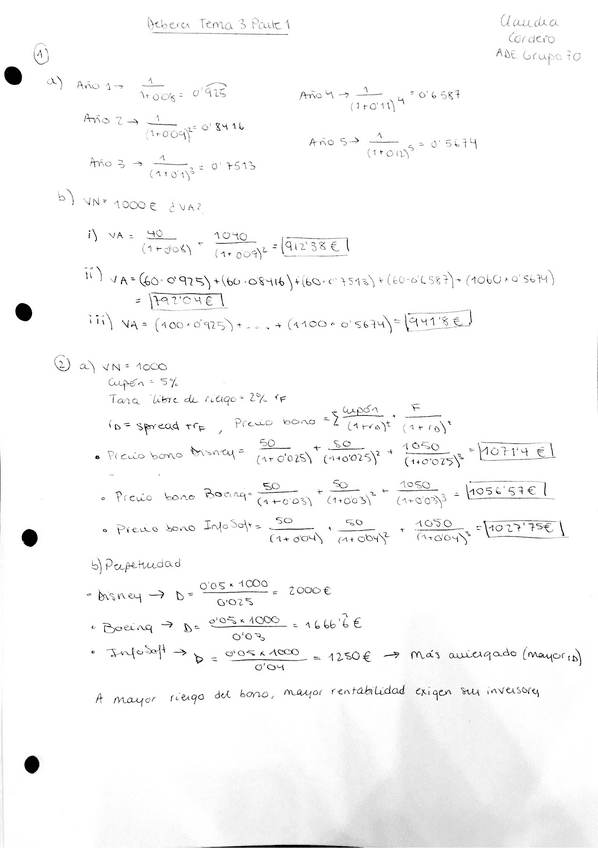 Deberes Tema 3 Parte 1
Claudia
Cordero
ADE Grupo 70
1
a) Año 1 → 1/(1+0'08) = 0'925
Año 4 → 1/(1+0'11)^4 = 0'6587
Año 2 → 1/(1+0'09)^2 = 0'8416
Año 5 → 1/(1+0'12)^5 = 0'5674
Año 3 → 1/(1+0'1)^3 = 0'7513
b) VN = 1000€ ¿VA?
i) VA = 40/(1+0'08) + 1040/(1+0'09)^2 = 912'38€
ii) VA = (60·0'925)+(60·0'8416)+(60·0'7513)+(60·0'6587)+(1060×0'5674)
= 792'04€
iii) VA = (100×0'925) + ... + (1100×0'5674) = 941'8€
2 a) VN = 1000
Cupón = 5%
Tasa libre de riesgo = 2% rF
rD = spread + rF, Precio bono = Σ Cupón/(1+rD)^t + F/(1+rD)^t
• Precio bono Disney = 50/(1+0'025) + 50/(1+0'025)^2 + 1050/(1+0'025)^3 = 1071'4€
• Precio bono Boeing = 50/(1+0'03) + 50/(1+0'03)^2 + 1050/(1+0'03)^3 = 1056'57€
• Precio bono InfoSoft = 50/(1+0'04) + 50/(1+0'04)^2 + 1050/(1+0'04)^3 = 1027'75€
b) Perpetuidad
• Disney → D = 0'05×1000/0'025 = 2000€
• Boeing → D = 0'05×1000/0'03 = 1666'6€
• InfoSoft → D = 0'05×1000/0'04 = 1250€ → Más arriesgado (mayor rD)
A mayor riesgo del bono, mayor rentabilidad exigen sus inversores